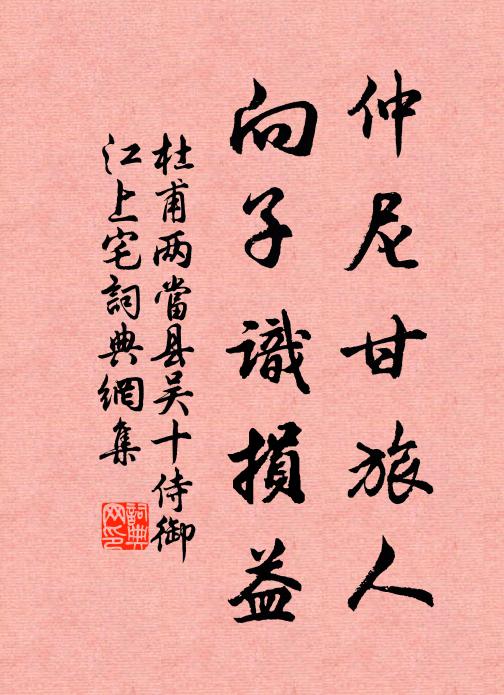 仲尼甘旅人
向子識損益
杜甫两當县吴十侍御
江上宅詞典網集
詞典
网印